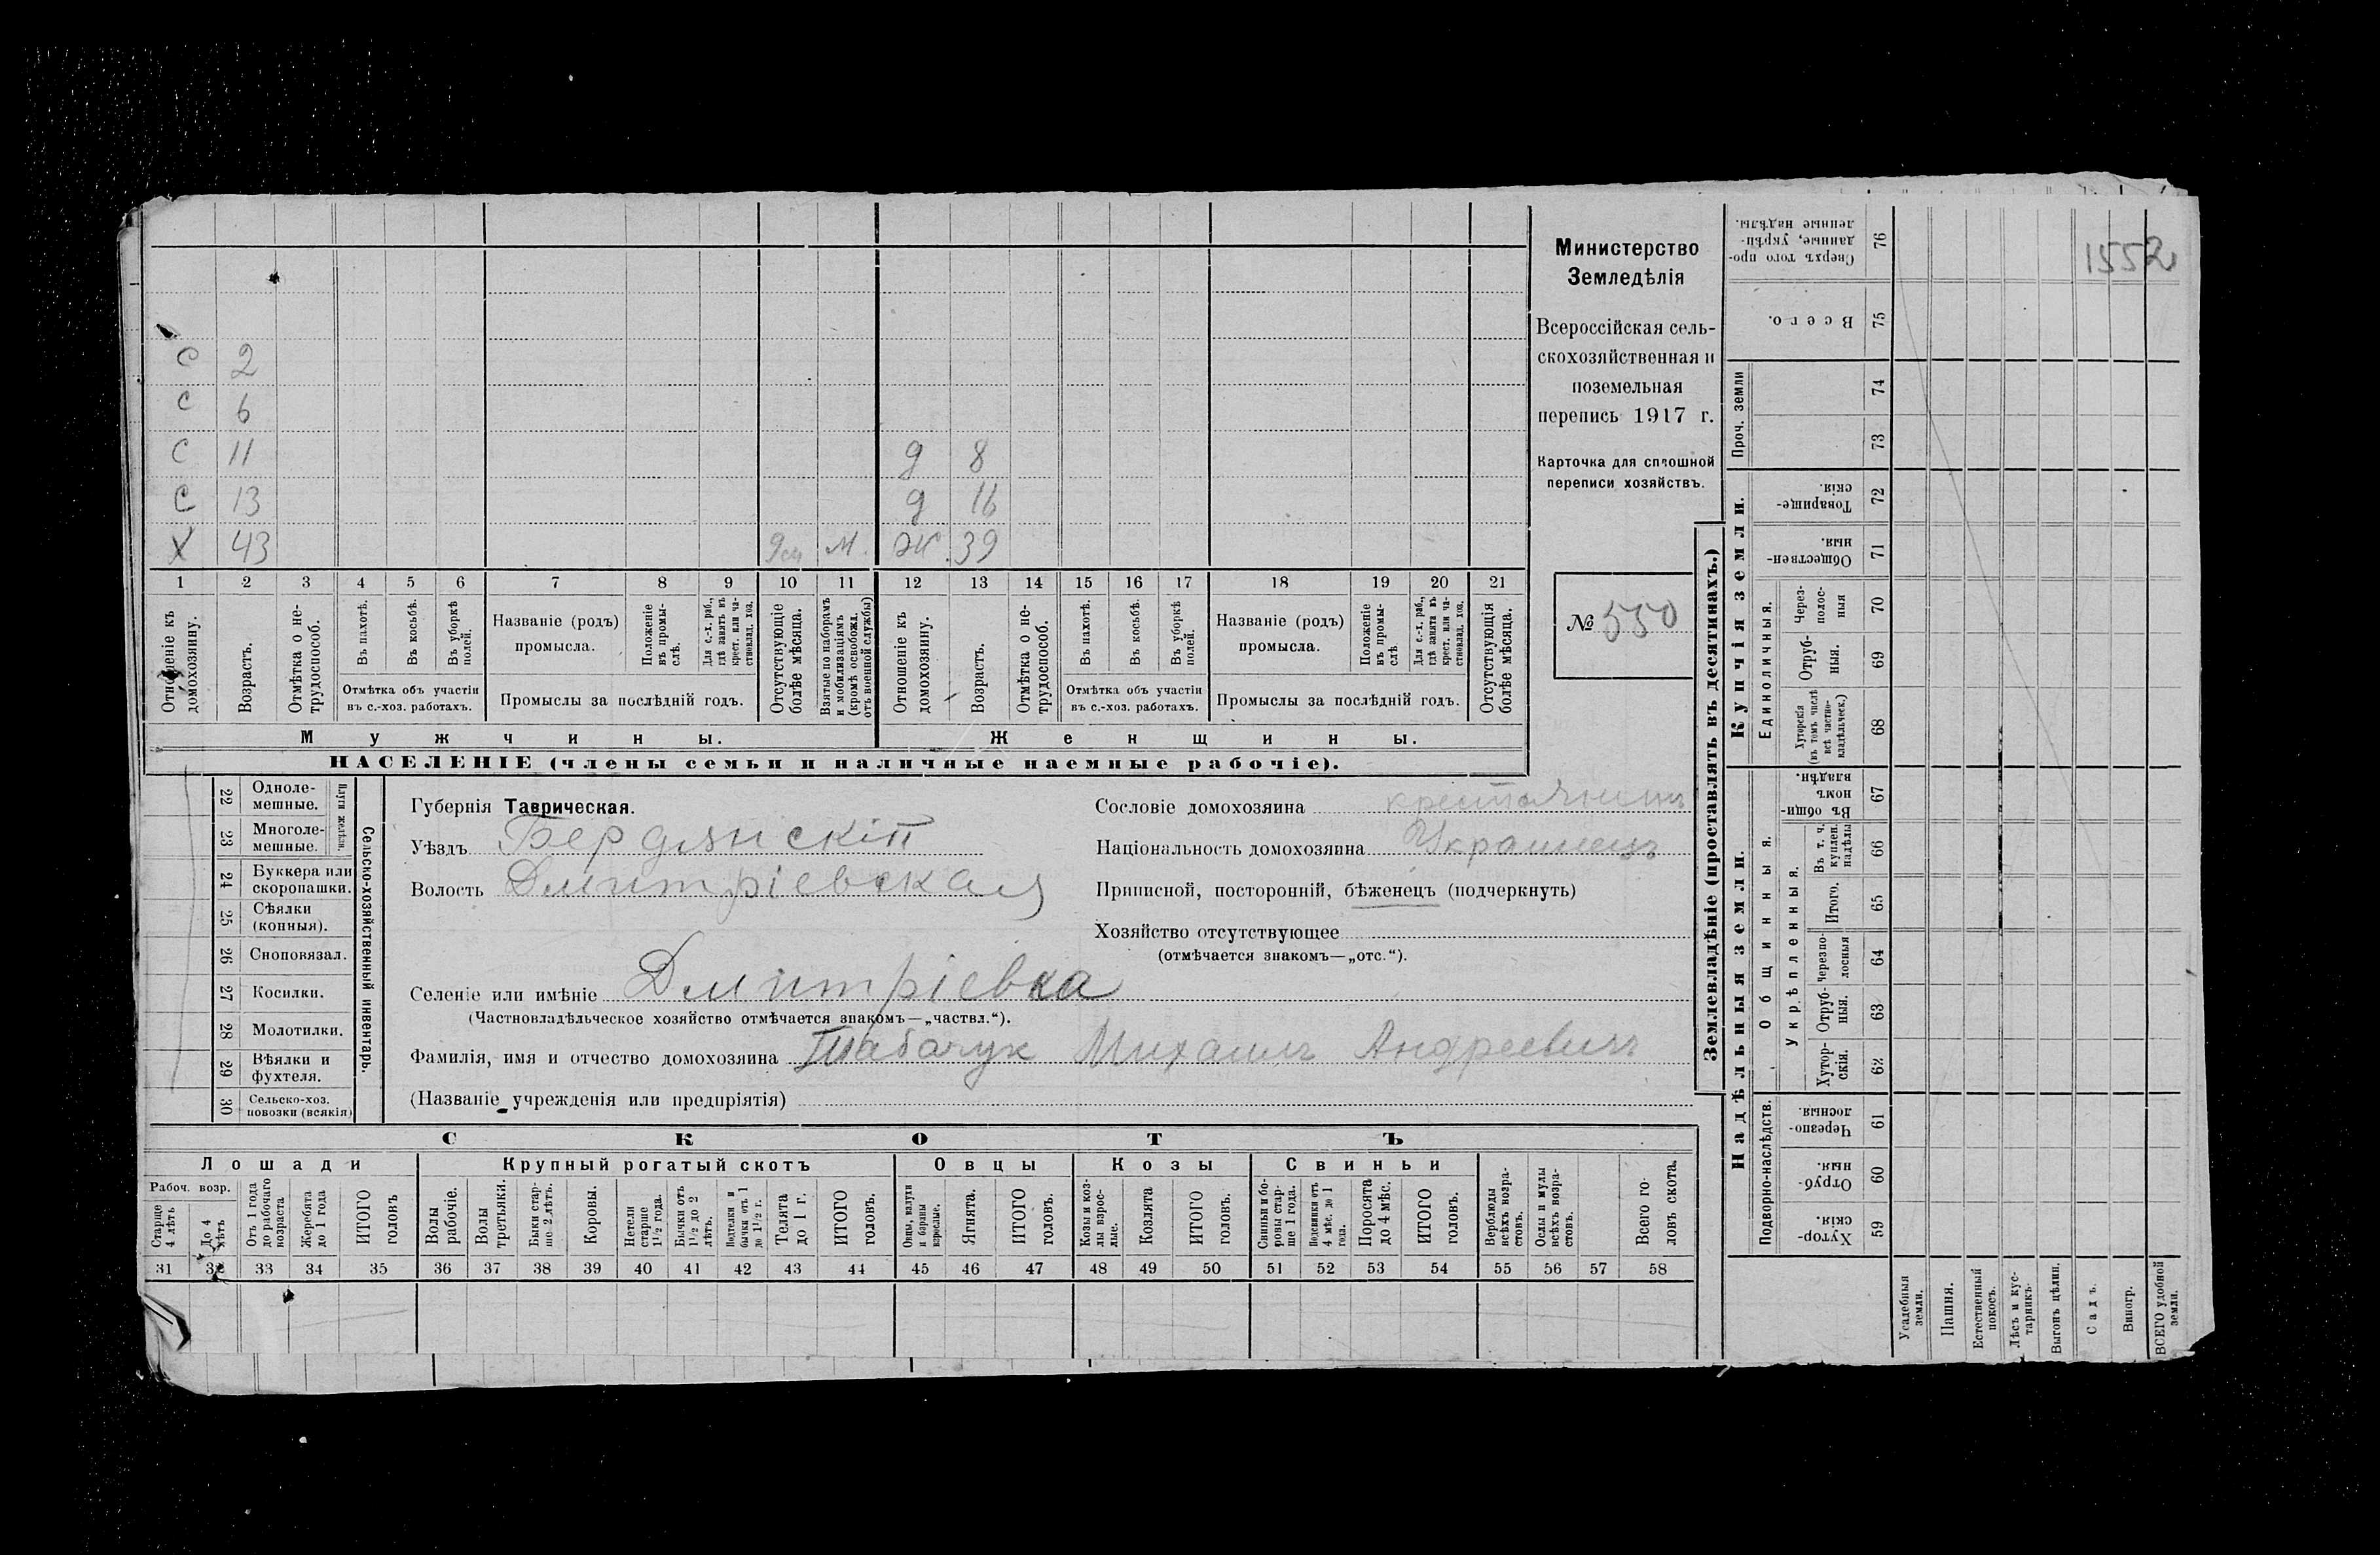 1552
Министерство
Земледѣлія
Всероссійская сель-
скохозяйственная и
поземельная
перепись 1917 г.
Карточка для сплошной
переписи хозяйствъ.
№ 550
С 2
С 6
С 11 д 8
С 13 д 16
Х 43 М. Ж. 39
1 2 3 4 5 6 7 8 9 10 11 12 13 14 15 16 17 18 19 20 21
Отношеніе къ домохозяину.
Возрастъ.
Отмѣтка о не-трудоспособ.
Въ пахотѣ.
Въ косьбѣ.
Въ уборкѣ полей.
Отмѣтка объ участіи
въ с.-хоз. работахъ.
Названіе (родъ)
промысла.
Положеніе въ промы-слѣ.
Для с.-х. раб., гдѣ занятъ въ крест. или ча-стновлад. хоз.
Промыслы за послѣдній годъ.
Отсутствующіе болѣе мѣсяца.
Взятые по наборамъ и мобилизаціямъ (кромѣ освобожд. отъ военной службы)
Отношеніе къ домохозяину.
Возрастъ.
Отмѣтка о не-трудоспособ.
Въ пахотѣ.
Въ косьбѣ.
Въ уборкѣ полей.
Отмѣтка объ участіи
въ с.-хоз. работахъ.
Названіе (родъ)
промысла.
Положеніе въ промы-слѣ.
Для с.-х. раб., гдѣ занята въ крест. или ча-стновлад. хоз.
Промыслы за послѣдній годъ.
Отсутствующія болѣе мѣсяца.
Мужчины. Женщины.
НАСЕЛЕНІЕ (члены семьи и наличные наемные рабочіе).
Сельско-хозяйственный инвентарь.
Плуги желѣзн.
22 Одноле-мешные.
23 Многоле-мешные.
24 Буккера или скоропашки.
25 Сѣялки (конныя).
26 Сноповязал.
27 Косилки.
28 Молотилки.
29 Вѣялки и фухтеля.
30 Сельско-хоз. повозки (всякія)
Губернія Таврическая.
Уѣздъ Бердянскій
Волость Дмитріевская
Сословіе домохозяина крестьянинъ
Національность домохозяина Украинецъ
Приписной, посторонній, бѣженецъ (подчеркнуть)
Хозяйство отсутствующее
(отмѣчается знакомъ—„отс.“).
Селеніе или имѣніе Дмитріевка
(Частновладѣльческое хозяйство отмѣчается знакомъ—„частвл.“).
Фамилія, имя и отчество домохозяина Табачук Михаилъ Андреевичъ
(Названіе учрежденія или предпріятія)
СКОТЪ
Лошади Крупный рогатый скотъ Овцы Козы Свиньи
Рабоч. возр.
Старше 4 лѣтъ
До 4 лѣтъ
Отъ 1 года до рабочаго возраста
Жеребята до 1 года
ИТОГО головъ
Волы рабочіе.
Волы третьяки.
Быки стар-ше 2 лѣтъ.
Коровы.
Нетели старше 1½ года.
Бычки отъ 1½ до 2 лѣтъ.
Подтелки и бычки отъ 1 до 1½ г.
Телята до 1 г.
ИТОГО головъ.
Овцы, валухи и бараны взрослые.
Ягнята.
ИТОГО головъ.
Козы и коз-лы взрос-лые.
Козлята
ИТОГО головъ.
Свиньи и бо-ровы стар-ше 1 года.
Подсвинки отъ 4 мѣс. до 1 года.
Поросята до 4 мѣс.
ИТОГО головъ.
Верблюды всѣхъ возра-стовъ.
Ослы и мулы всѣхъ возра-стовъ.
Всего го-ловъ скота.
31 32 33 34 35 36 37 38 39 40 41 42 43 44 45 46 47 48 49 50 51 52 53 54 55 56 57 58
Землевладѣніе (проставлять въ десятинахъ.)
Купчія земли.
Надѣльныя земли.
Сверхъ того про-данные, укрѣп-ленные надѣлы. 76
Всего. 75
Проч. земли
74
73
Товарище-скія. 72
Обществен-ныя. 71
Единоличныя.
Через-полос-ныя 70
Отруб-ныя. 69
Хуторскія (въ томъ числѣ всѣ частно-владѣльческ.) 68
Общинныя.
Въ общин-номъ владѣн. 67
Укрѣпленныя.
Въ т. ч. куплен. надѣлы 66
Итого. 65
Черезпо-лосныя 64
Отруб-ныя. 63
Хутор-скія. 62
Подворно-наслѣдств.
Черезпо-лосныя. 61
Отруб-ныя. 60
Хутор-скія. 59
Усадебныя земли.
Пашня.
Естественный покосъ.
Лѣсъ и кус-тарникъ.
Выгонъ цѣлин.
Садъ.
Виногр.
ВСЕГО удобной земли.